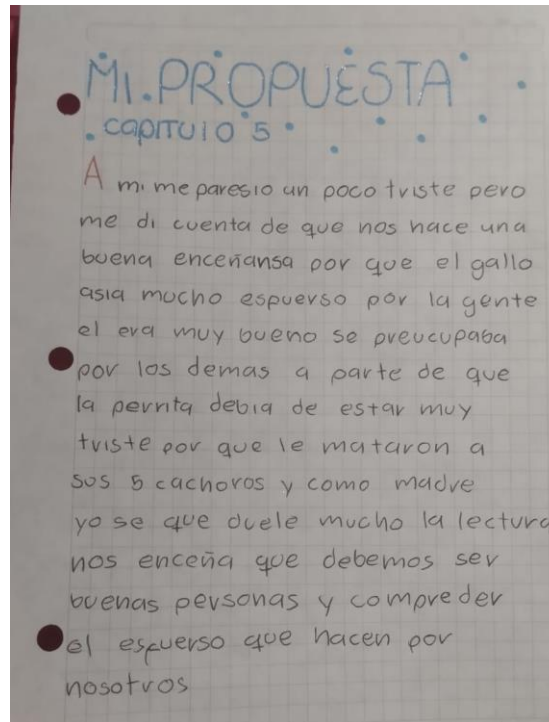 MI.PROPUESTA
capITUlO 5
A mi me paresio un poco triste pero
me di cuenta de que nos hace una
buena enceñansa por que el gallo
asia mucho espuerso por la gente
el era muy bueno se preucupaba
por los demas a parte de que
la perrita debia de estar muy
triste por que le mataron a
sus 5 cachoros y como madre
yo se que duele mucho la lectura
nos enceña que debemos ser
buenas personas y compreder
el espuerso que hacen por
nosotros